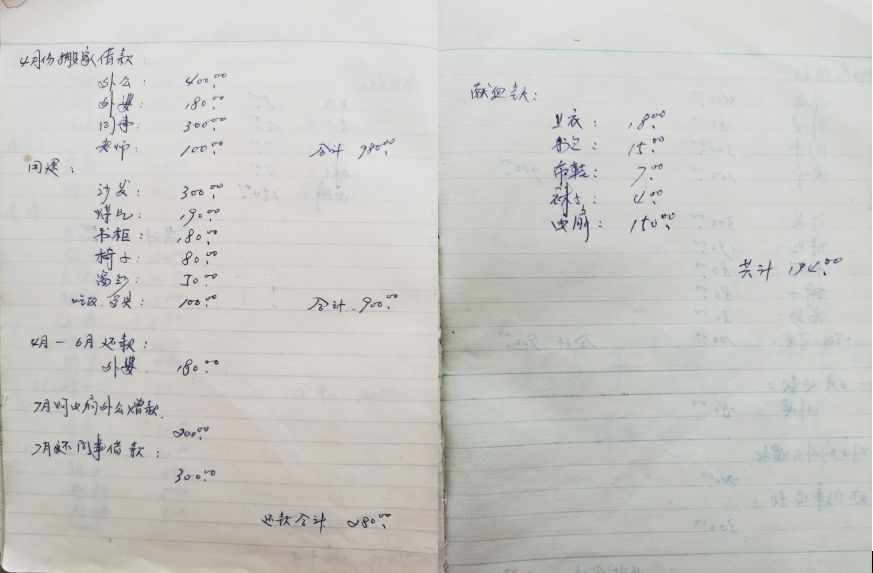 4月份搬家借款:
外公: 400.00
外婆: 180.00
同事: 300.00
老师: 100.00 合计 980.00
用途:
沙发: 300.00
煤气: 190.00
书柜: 180.00
椅子: 80.00
窗纱: 50.00
吃饭. 100.00 合计. 900.00
4月-6月还款:
外婆. 180.00
7月时电扇外公赠款.
200.00
7月还同事借款:
300.00
还款合计 280.00
献血款:
上衣: 18.00
书包: 15.00
布鞋: 7.00
袜子: 4.00
电扇: 150.00
共计 194.00